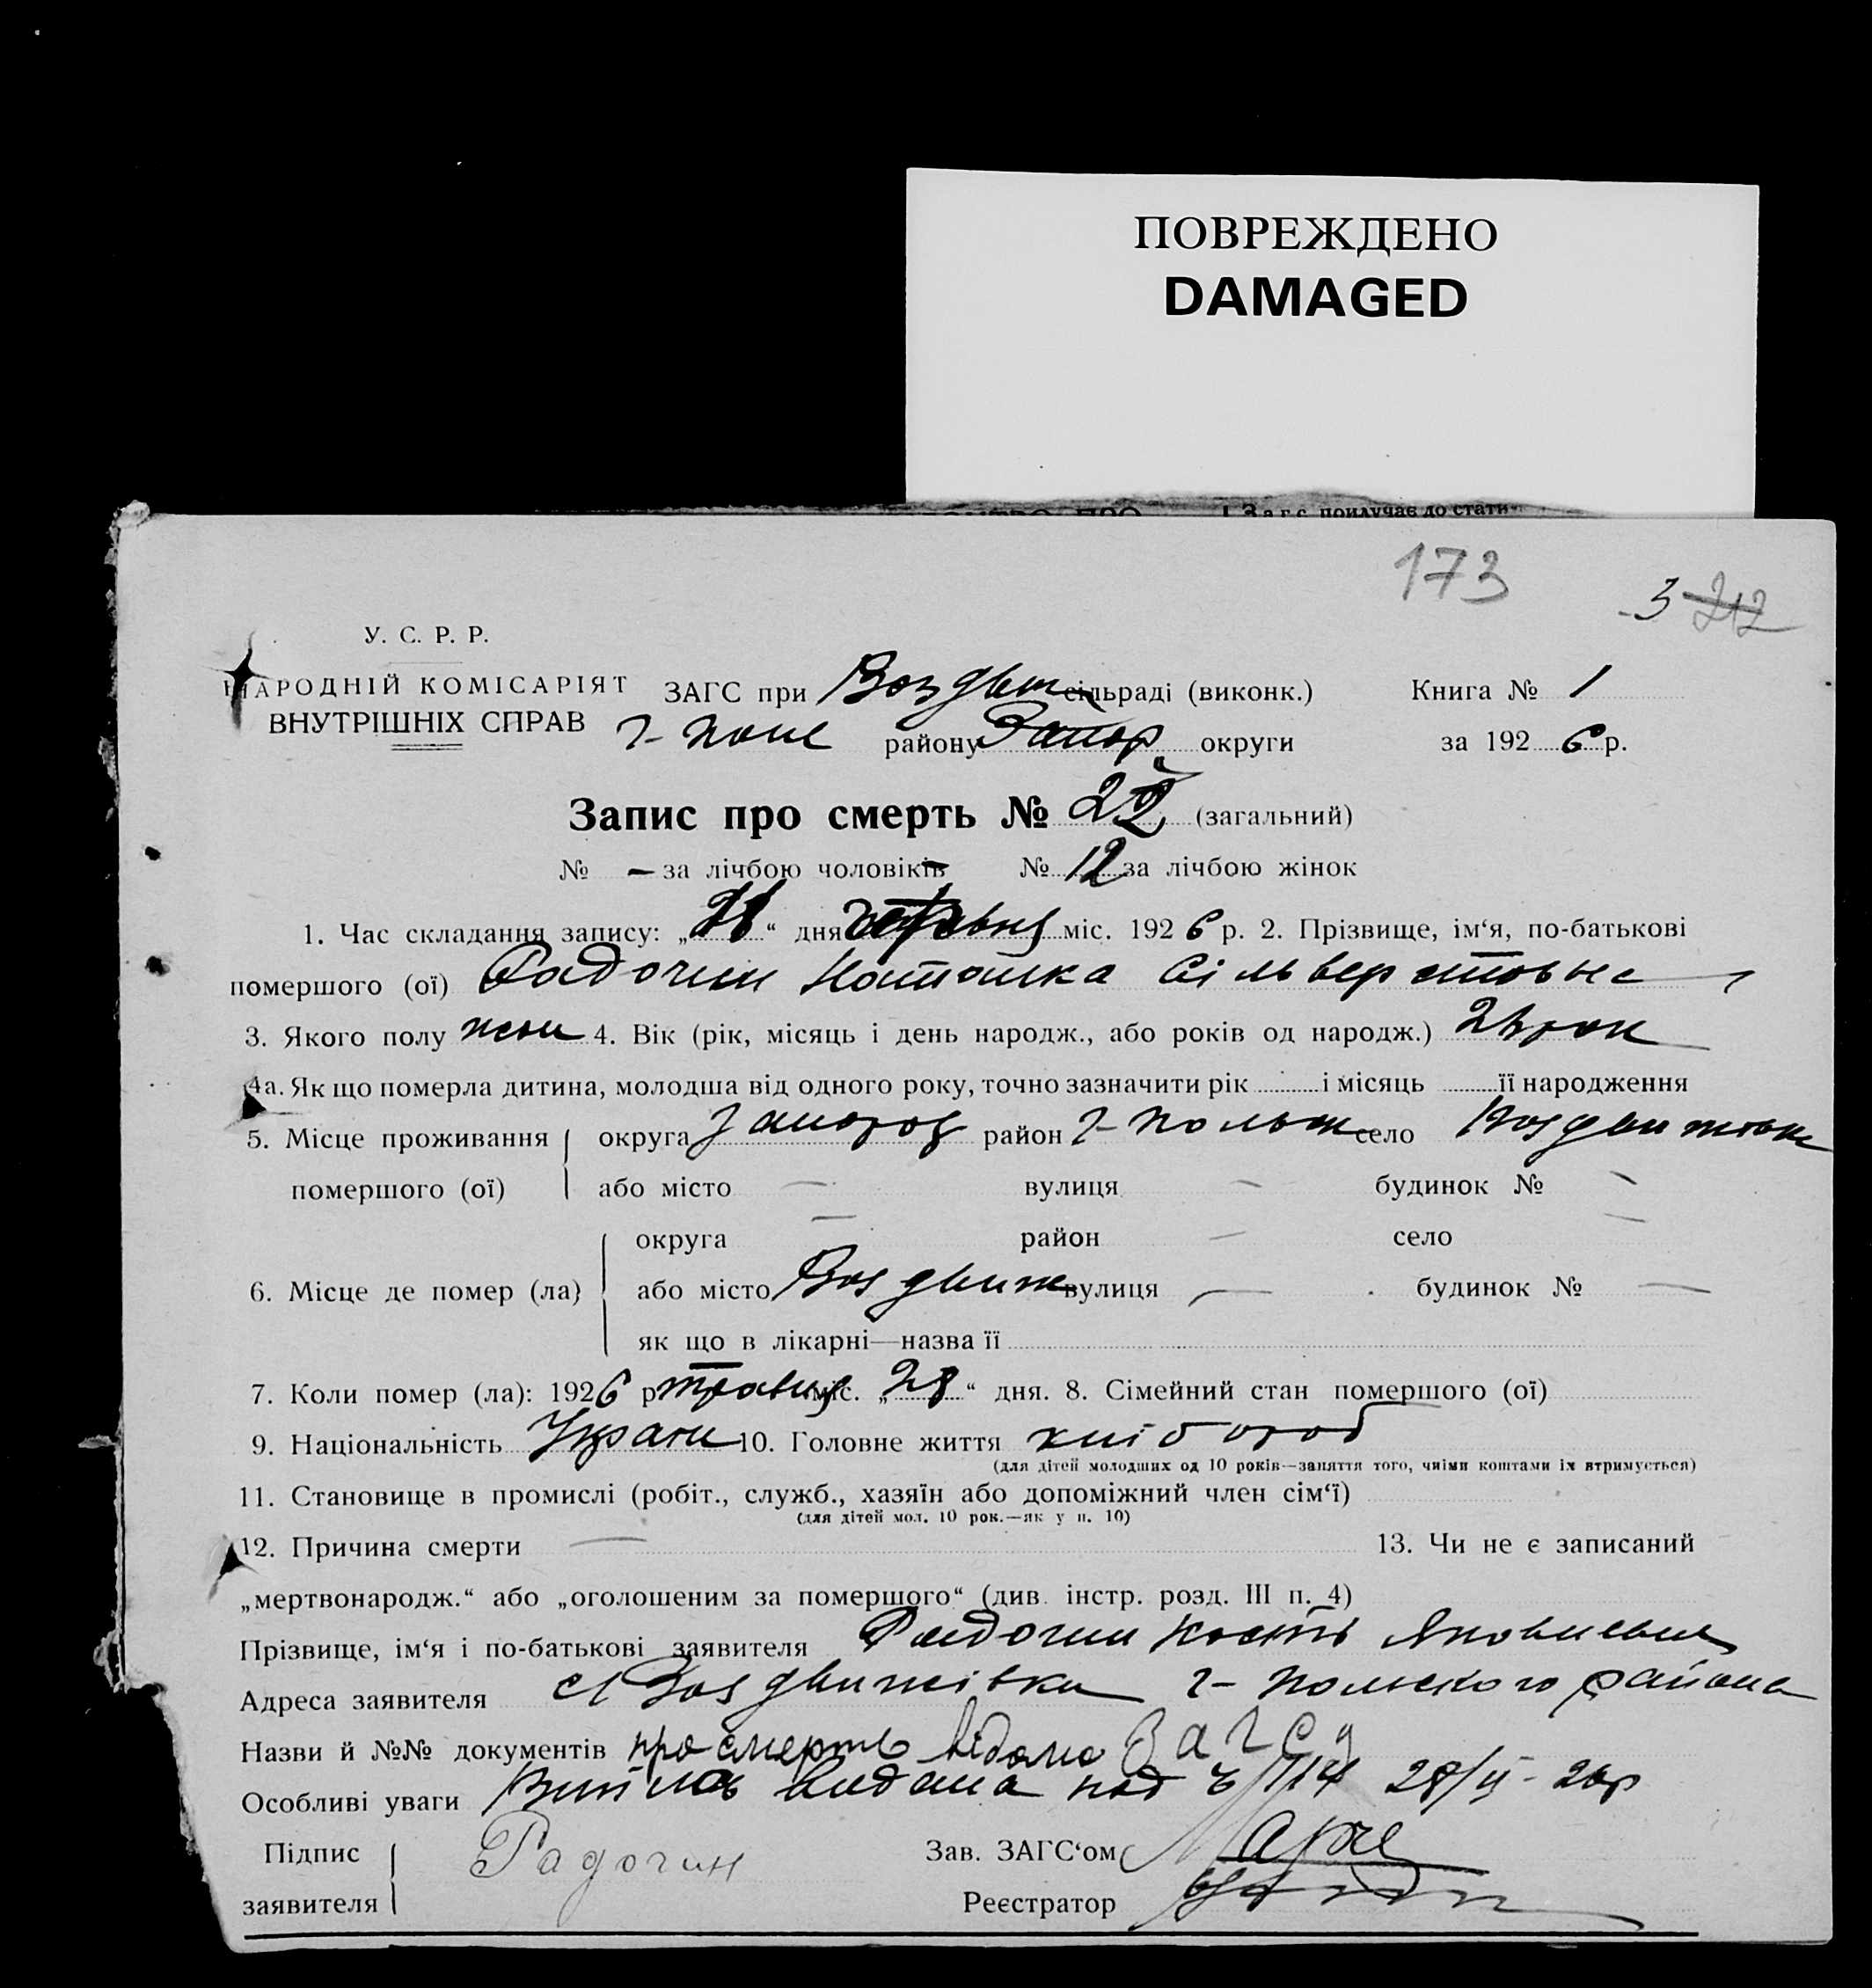 ПОВРЕЖДЕНО
DAMAGED
Загс прилучає до стати-
173
3 212
У. С. Р. Р.
НАРОДНІЙ КОМІСАРІЯТ
ВНУТРІШНІХ СПРАВ
ЗАГС при Воздвиж сільраді (виконк.) Книга № 1
Г-поле району Запор округи за 1926 р.
Запис про смерть № 22 (загальний)
№ — за лічбою чоловіків № 12 за лічбою жінок
1. Час складання запису: „28“ дня міс. 1926 р. 2. Прізвище, ім‘я, по-батькові
помершого (ої) Радочин Наталка Сільверстовна
3. Якого полу жін 4. Вік (рік, місяць і день народж., або років од народж.) рок
4а. Як що померла дитина, молодша від одного року, точно зазначити рік і місяць її народження
5. Місце проживання округа Запороз район Г-Польск село Воздвижівка
помершого (ої) або місто — вулиця — будинок № —
округа — район — село —
6. Місце де помер (ла) або місто Воздвиж вулиця — будинок № —
як що в лікарні—назва її
7. Коли помер (ла): 1926 р травня міс. „28“ дня. 8. Сімейний стан помершого (ої)
9. Національність Україн 10. Головне життя хлібороб
(для дітей молодших од 10 років—заняття того, чиїми коштами їх втримується)
11. Становище в промислі (робіт., служб., хазяїн або допоміжний член сім‘ї)
(для дітей мол. 10 рок.—як у п. 10)
12. Причина смерти — 13. Чи не є записаний
„мертвонародж.“ або „оголошеним за помершого“ (див. інстр. розд. III п. 4)
Прізвище, ім‘я і по-батькові заявителя Радочин Кость Яковлевич
Адреса заявителя с Воздвижівка Г-Польского района
Назви й №№ документів про смерть відомо Загсу
Особливі уваги Витяг видана под
Підпис Радочин Зав. ЗАГС‘ом
заявителя Реєстратор